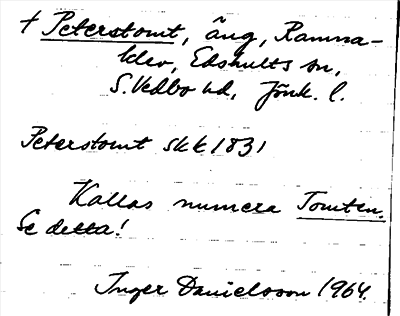 † Peterstomt, äng, Ramna-
klev, Edshults sn,
S. Vedbo hd, Jönk. l.
Peterstomt skk 1831
Kallas numera Tomten.
Se detta!
Inger Danielsson 1964.